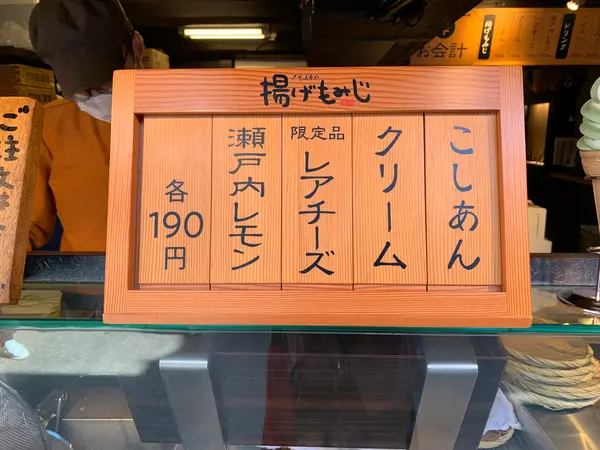 揚げもみじ
こしあん
クリーム
限定品
レアチーズ
瀬戸内レモン
各
190
円
ご注文
お会計
揚げもみじ
ドリンク